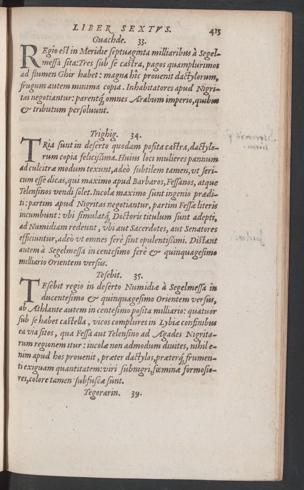 LIBER SEXTVS. 415
Guachde. 33.
REgio est in Meridie septuaginta milliaribus à Segel-
messa sita: Tres sub se castra, pagos quamplurimos
ad flumen Ghir habet: magna hic prouenit dactylorum,
frugum autem minima copia. Inhabitatores apud Nigri-
tas negotiantur: parentq́, omnes Arabum imperio, quibus
& tributum persoluunt.
Trighig. 34.
TRia sunt in deserto quodam posita castra, dactylo-
rum copia felicissima. Huius loci mulieres pannum
ad culcitræ modum texunt, adeò subtilem tamen, vt seri-
cum esse dicas, qui maximo apud Barbaros, Fessanos, atque
Telensinos vendi solet. Incolæ maximo sunt ingenio prædi-
ti: partim apud Nigritas negotiantur, partim Fessæ literis
incumbunt: vbi simulatq́, Doctoris titulum sunt adepti,
ad Numidiam redeunt, vbi aut Sacerdotes, aut Senatores
efficiuntur, adeò vt omnes ferè sint opulentissimi. Distant
autem à Segelmessa in centesimo ferè & quinquagesimo
milliario Orientem versus.
Tesebit. 35.
TEsebit regio in deserto Numidiæ à Segelmessa in
ducentesimo & quinquagesimo Orientem versus,
ab Athlante autem in centesimo posita milliario: quatuor
sub se habet castella, vicos complures in Lybiæ confinibus
ea via sitos, qua Fessa aut Telensino ad Agades Nigrita-
rum regionem itur: incolæ non admodum diuites, nihil e-
nim apud hos prouenit, præter dactylos, præterq́, frumen-
ti exiguam quantitatem: viri subnigri, fœminæ formosio-
res, colore tamen subfuscæ sunt.
Tegorarin. 39.